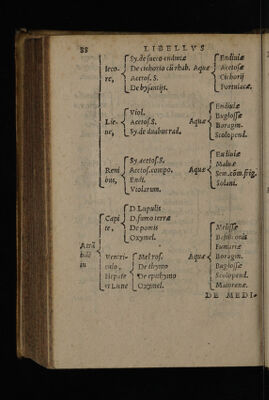 88 LIBELLVS
Sy. de succo endiuiæ
Ieco- De cichorio cũ rhab. Aquæ
re, Acetos. S.
De byzantijs.
Endiuiæ
Acetosæ
Cichorij
Portulacæ.
Viol.
Lie- Acetos. S. Aquæ
ne, Sy. de duabus rad.
Endiuiæ
Buglossæ
Boragin.
Scolopend.
Sy. Acetos. S.
Reni Acetos. compo. Aquæ
bus, Endi.
Violarum.
Endiuiæ
Maluæ
Sem. cõm. frig.
Solani.
D. Lupulis
Capi D. fumo terræ
te, D. pomis
Oxymel.
Atrã
bilē
in
Ventri- Mel ros. Aquæ
culo, De thymo
Hepate De epithymo
et Liene Oxymel.
Melissæ
Fumariæ
Boragin.
Buglossæ
Scolopend.
DE MEDI-